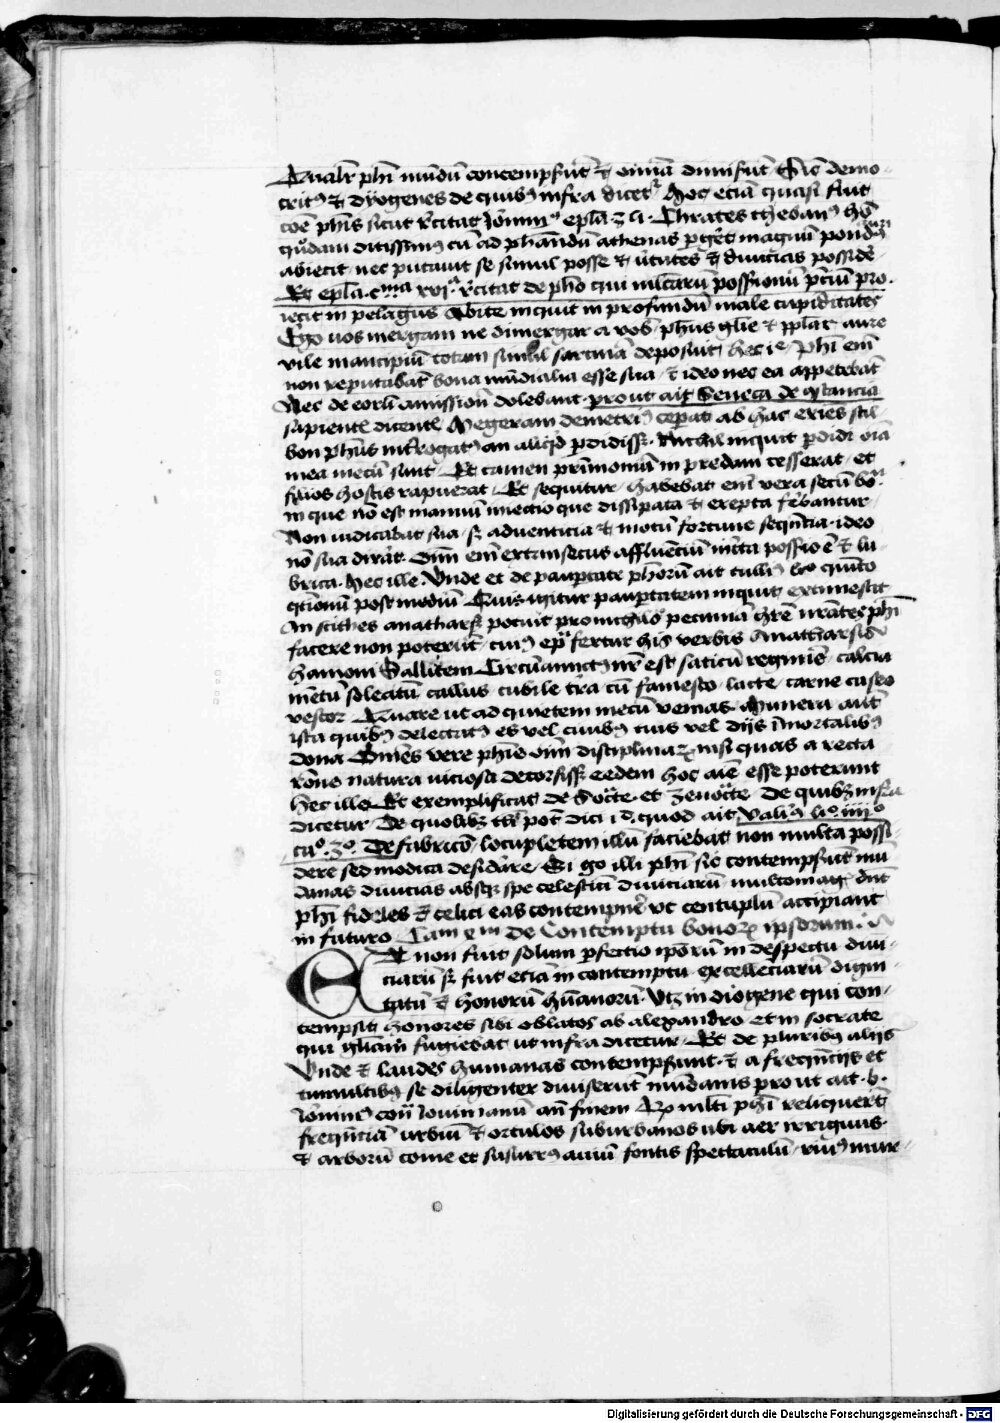 Qualiter phi mundū contempserūt et omnia dimiserūt Sic demo-
critꝰ et dyogenes de quibꝰ infra dicetr Hoc etiā quasi fuit
cōe phis sicut recitat Ieronimꝰ epla 24. Chrates thebanꝰ hō
quōdam ditissimꝰ cū ad phandū athenas pgeret magnū pondꝰ auri
abiecit nec putauit se simul posse et virtutes et diuicias possidē-
Et epla cma xvja recitat de pho qui multarū possessionū preciū pro-
iecit in pelagus Abite inquit in profundū male cupiditates
Ego uos mergam ne dimergar a vob phus glie et pplar aure
vile mancipiū totam simul sarcinā deposuit hec ie Phi eni
non reputabāt bona mūdialia esse sua et ideo nec ea appetebāt
Nec de eorū amissione dolebant prout ait Seneca de qstancia
sapientis dicens Megeram demetriꝰ ceperat ab hac eries stil-
bon phus introgatꝰ an aliqd pdidisset Nichil inquit pdidi oīa
mea mecū sunt Et tamen primoniū in predam cesserat et
filios hostis rapuerat Et sequitur habebat eni vera secū bō
in que nō est manuū iniectio que dissipata et erepta ferebantur
Non iudicabat sua sz aduenticia et motū fortune sequēcia ideo
nō sua dixit Oīm eni extrinsecus affluencium incta possessio ē et lu-
brica hec ille Unde et de paupertate phorū ait tulliꝰ lro quinto
qtionū post mediū Cuiꝰ igitur paupertatem inquit extimescit
An scithes anatharsis potuit pro nichilo pecuniā hre nrātes phi
facere non poterūt cuiꝰ epla fertur his verbis Anatharsis
hamoni Sallutem Circūamictꝰ mr est saticū regminis calcia
mētū solecitū callus cubile tra cū famesco lacte carne caseo
vescor Quare ut ad quietem mecū venias Munera aut
ista quibꝰ delectatꝰ es vel ciuibꝰ tuis vel diis imortalibꝰ
dona Omnes vere phie oīm disciplinarꝝ nisi quas a recta
rōne natura viciosa detorsisset eedem hoc aiē esse poterunt
hec ille Et exemplificat de Socrate et Zenocrate De quibꝫ infra
dicetur De quolibꝫ pot dici id quod ait valiꝰ lro iiij°
ca° 3° De fabricio locupletem illū faciebat non multa possi-
dere sed modica desidare Si go illi phi sic contempserūt mū
danas diuicias absqꝫ spe celestiū diuiciarū multomagis dnt
phi fideles et celici eas contempnere vt centuplū accipiant
in futuro Cam xm De Contemptu honorꝝ ipsorum
Et non fuit solum pfectio ipōrū in despectu diui-
ciarū sz fuit etiā in contemptu excellēciarū digni-
tatū et honorū hūanorū Utꝫ in diogene qui con-
tempsit honores sibi oblatos ab alexandro et in socrate
qui gloriā fugiebat ut infra dicetur Et de pluribꝰ aliis
Unde et laudes humanas contempserunt et a frequēciis et
tumultibꝰ se diligenter diuiserūt mūdanis prout ait b.
Ieronimꝰ con iouinianū an finem Qꝫ multi phi reliquerūt
frequēciā urbiū et ortulos suburbanos ubi aer irriguus
et arborū come et susurrꝰ auiū fontis spectaculū riuꝰ mur-
Digitalisierung gefördert durch die Deutsche Forschungsgemeinschaft - DFG